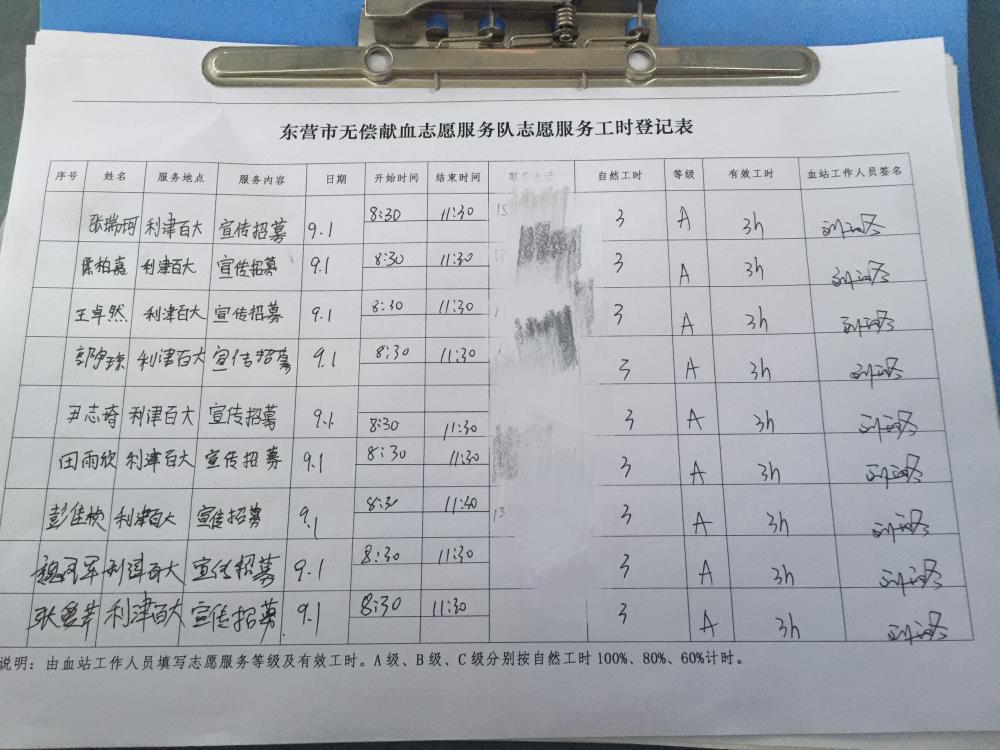 东营市无偿献血志愿服务队志愿服务工时登记表
序号 姓名 服务地点 服务内容 日期 开始时间 结束时间 自然工时 等级 有效工时 血站工作人员签名
张瑞珂 利津百大 宣传招募 9.1 8:30 11:30 15 3 A 3h
利津百大 宣传招募 9.1 8:30 11:30 3 A 3h
王卓然 利津百大 宣传招募 9.1 8:30 11:30 3 A 3h
利津百大 宣传招募 9.1 8:30 11:30 3 A 3h
尹志琦 利津百大 宣传招募 9.1 8:30 11:30 3 A 3h
田雨欣 利津百大 宣传招募 9.1 8:30 11:30 3 A 3h
利津百大 宣传招募 9.1 8:30 11:30 13 3 A 3h
利津百大 宣传招募 9.1 8:30 11:30 3 A 3h
利津百大 宣传招募 9.1 8:30 11:30 3 A 3h
说明：由血站工作人员填写志愿服务等级及有效工时。A级、B级、C级分别按自然工时100%、80%、60%计时。